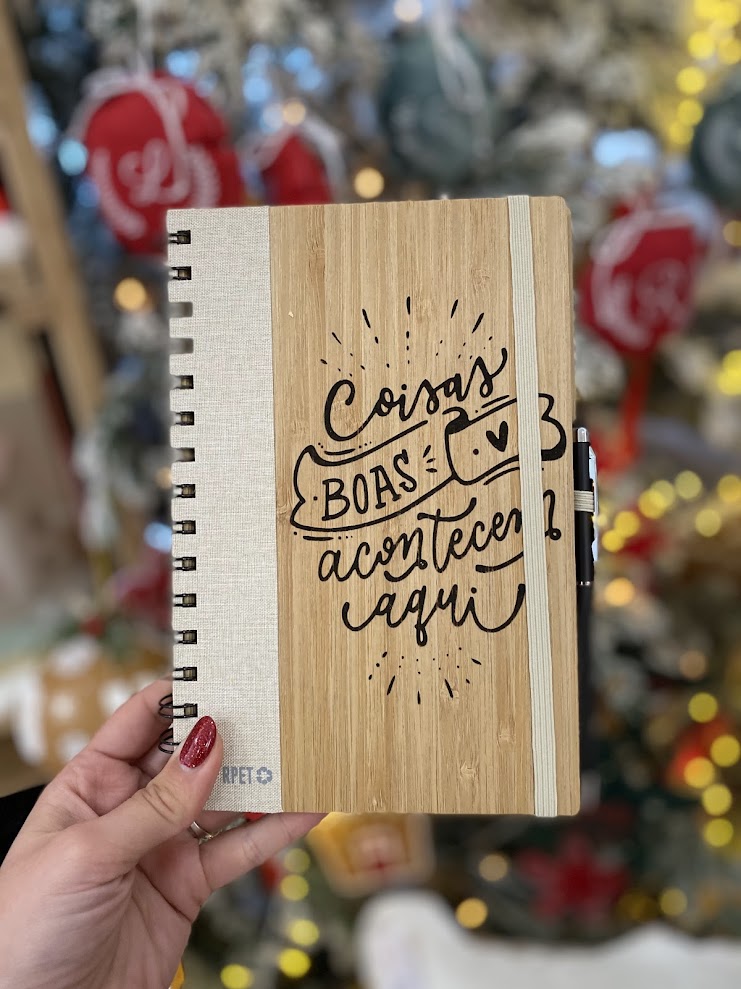 Coisas
BOAS
acontecem
aqui
RPET
L
R